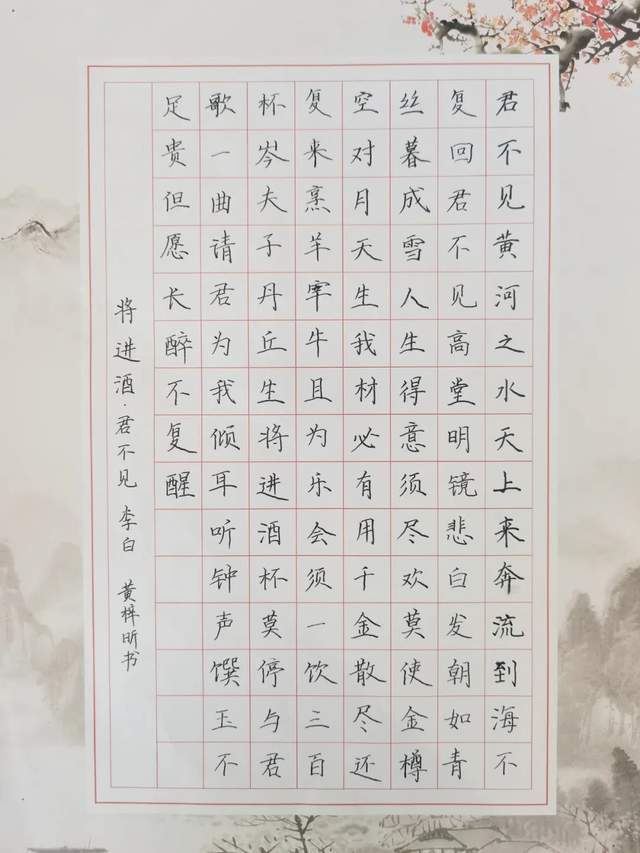 君不见黄河之水天上来奔流到海不
复回君不见高堂明镜悲白发朝如青
丝暮成雪人生得意须尽欢莫使金樽
空对月天生我材必有用千金散尽还
复来烹羊宰牛且为乐会须一饮三百
杯岑夫子丹丘生将进酒杯莫停与君
歌一曲请君为我倾耳听钟声馔玉不
足贵但愿长醉不复醒
将进酒·君不见 李白 黄梓昕书